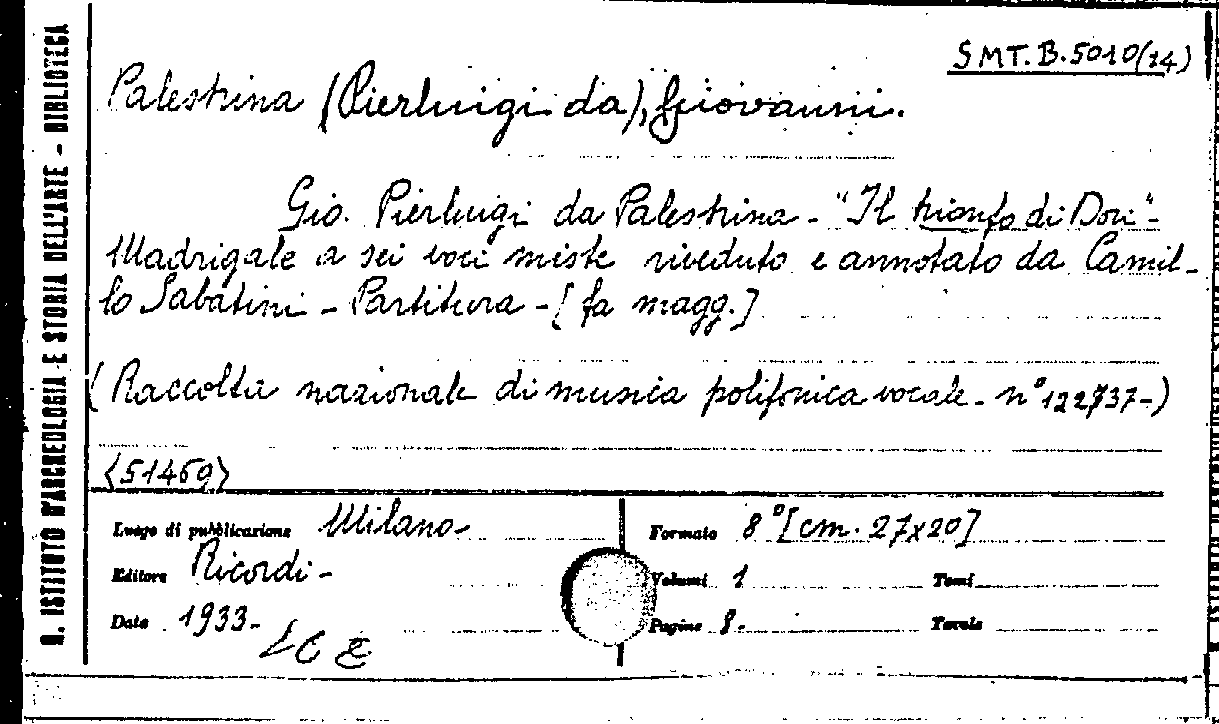 SMT.B.5010(14)
Palestrina (Pierluigi da), Giovanni.
Gio. Pierluigi da Palestrina - "Il trionfo di Dori" -
Madrigale a sei voci miste riveduto e annotato da Camil-
lo Sabatini - Partitura - [fa magg.]
(Raccolta nazionale di musica polifonica vocale - n° 122737-)
<51469>
Luogo di pubblicazione Milano-
Editore Ricordi -
Data 1933-
Formato 8° [cm. 27x20]
Volumi 1 Tomi
Pagine 8. Tavole
R. ISTITUTO D'ARCHEOLOGIA E STORIA DELL'ARTE - BIBLIOTECA